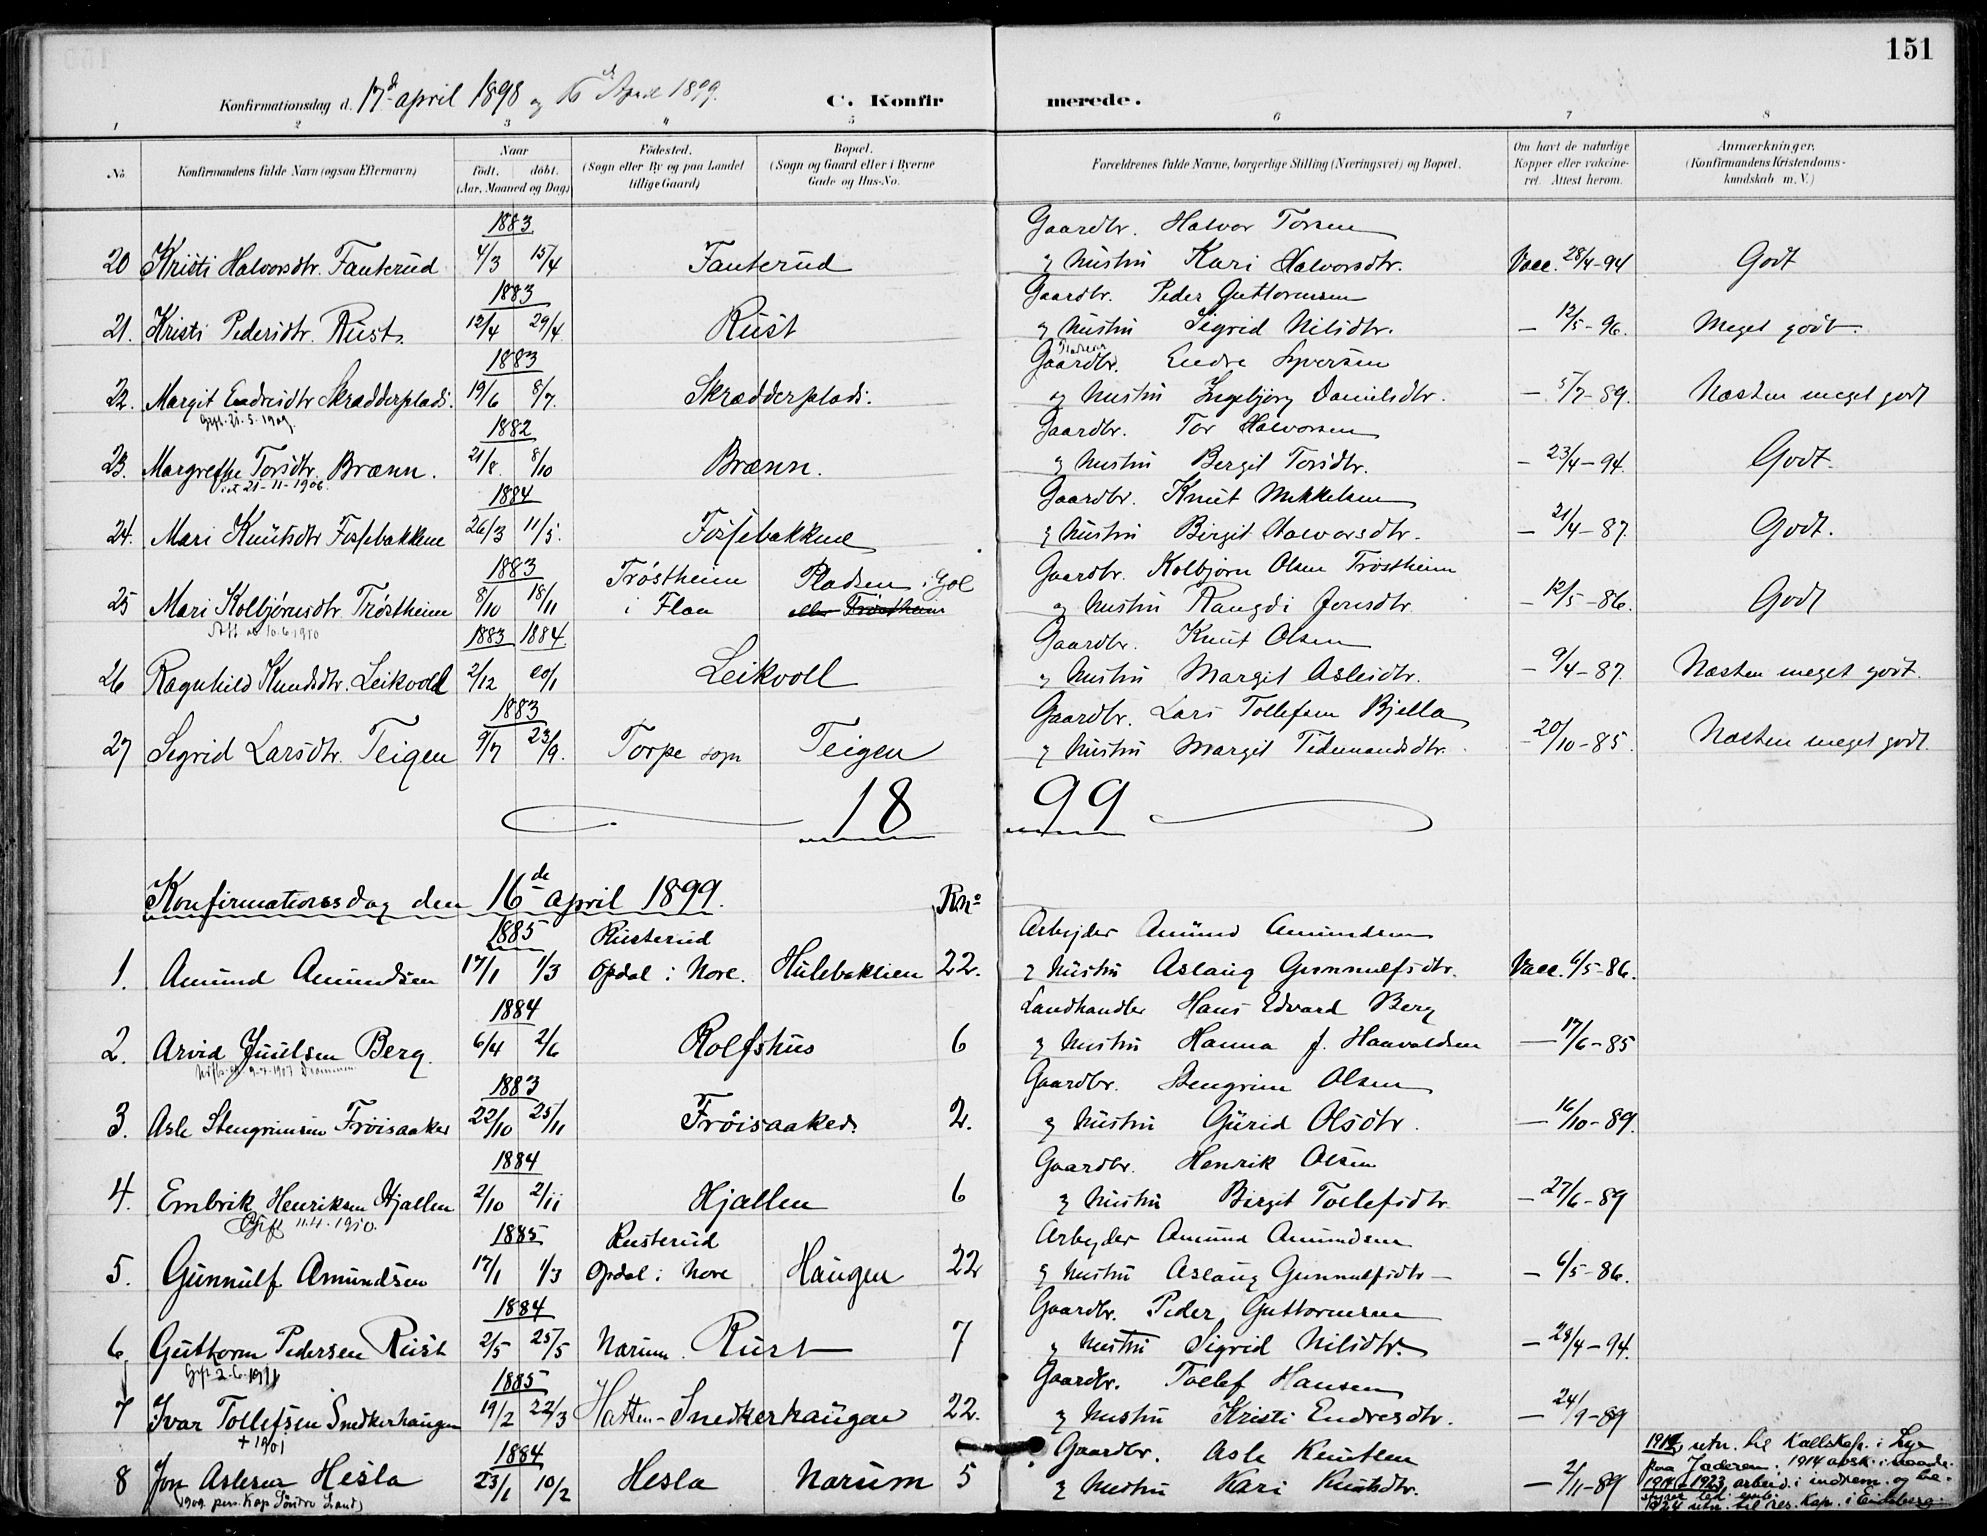 151
Konfirmationsdag d. 17de april 1898 og 16de April 1899.
C. Konfirmerede.
1 2 3 4 5 6 7 8
No
Konfirmandens fulde Navn (ogsaa Efternavn)
Naar
födt. döbt.
(Aar, Maaned og Dag)
Födested.
(Sogn eller By og paa Landet
tillige Gaard)
Bopæl.
(Sogn og Gaard eller i Byerne
Gade og Hus-No.
Forældrenes fulde Navne, borgerlige Stilling (Næringsvei) og Bopæl.
Om havt de naturlige
Kopper eller vakcine-
ret. Attest herom.
Anmærkninger.
(Konfirmandens Kristendoms-
kundskab m. V.)
1883 Gaardbr. Halvor Torsen
20 Kristi Halvorsdtr. Fanterud 4/3 15/4 Fanterud og hustru Kari Halvorsdtr. Vacc. 28/4-94 Godt
1883 Gaardbr. Peder Guttormsen
21. Kristi Pedersdtr. Rust. 12/4 29/4 Rust og hustru Sigrid Nilsdtr. – 12/5-96. Meget godt.
1883 Gaardbr. Endre Syversen
22. Margit Endresdtr Skrædderplads. 19/6 8/7. Skrædderplads. og hustru Ingebjørg Danielsdtr. – 5/7-89. Næsten meget godt
Gift 21.5.1909.
1882 Gaardbr. Tor Halvorsen
23. Margrethe Torsdtr. Brænn. 21/8 8/10 Brænn. og hustru Bergit Torsdtr. – 23/4-94. Godt.
21-11-1906.
1884 Gaardbr. Knut Mikkelsen
24. Mari Knutsdtr Fossebakkene 26/3 11/5. Fossebakkene og hustru Birgit Halvorsdtr. – 21/4-87. Godt.
1883 Trøstheim Pladsen i Gol Gaardbr. Kolbjørn Olsen Trøstheim
25 Mari Kolbjørnsdtr. Trøstheim 8/10 18/11 i Flaa eller Trøstheim og hustru Rangdi Jonsdtr. – 12/5-86. Godt
10.6.1910
1883 1884 Gaardbr. Knut Olsen
26 Ragnhild Knudsdtr. Leikvoll 2/12 20/1 Leikvoll og hustru Margit Aslesdtr. – 9/4-87. Næsten meget godt.
1883 Gaardbr. Lars Tollefsen Bjella
27 Sigrid Larsdtr. Teigen 9/7 23/9. Torpe sogn Teigen og hustru Margit Tidemandsdtr. – 20/10-85. Næsten meget godt.
1899
Konfirmationsdag den 16de april 1899.
1885 Rusterud Arbejder Amund Amundsen
1. Amund Amundsen 17/1 1/3 Opdal i Nore. Hulebakkien 22. og hustru Aslaug Gunnulfsdtr. Vacc. 6/5-86.
1884 Landhandler Hans Edvard Berg
2. Arvid Juulsen Berg. 6/4 2/6 Rolfshus 6 og hustru Hanna J. Haavaldsen – 17/6-85
1907 Drammen
1883 Gaardbr. Stengrim Olsen
3. Asle Stengrimsen Frøisaaker 22/10 25/11 Frøisaaker. 2. og hustru Gurid Olsdtr. – 16/10-89.
1884 Gaardbr. Henrik Olsen
4. Embrik Henriksen Hjallen 2/10 2/11 Hjallen 6 og hustru Birgit Tollefsdtr – 27/6-89
Gift 11.4.1910.
1885 Rusterud Arbejder Amund Amundsen
5. Gunnulf Amundsen 17/1 1/3 Opdal i Nore Haugen 22 og hustru Aslaug Gunnulfsdtr – 6/5-86.
1884 Gaardbr. Peder Guttormsen
6. Guttorm Pedersen Rust 2/5 25/5 Narum Rust 7 og hustru Sigrid Nilsdtr. – 28/4-94.
Gift 2.6.1911
1885 Gaardbr. Tollef Hansen
7 Ivar Tollefsen Snedkerhaugen 19/2 22/3 Hatten-Snedkerhaugen 22. og hustru Kristi Endresdtr. – 24/9-89
+ 1901
1884 Gaardbr. Asle Knutsen
8 Jon Aslesen Hesla 23/1 10/2 Hesla Narum 5 og hustru Kari Knutsdtr. – 2/11-89
1909 pers. Kap. Søndre Land
utn. til Kallskap. i Lye
paa Jæderen. 1914
1914-1923 arbeid. i indrem. og be-
1924 utn. til res. Kap. i Eidsberg.